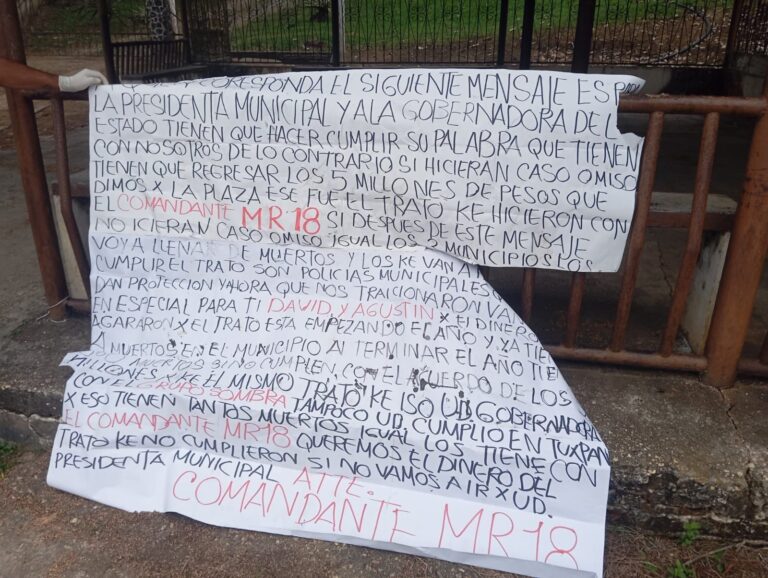 CORESPONDA EL SIGUIENTE MENSAJE ES PARA
LA PRESIDENTA MUNICIPAL Y ALA GOBERNADORA DEL
ESTADO TIENEN QUE HACER CUMPLIR SU PALABRA QUE TIENEN
CON NOSOTROS DE LO CONTRARIO SI HICIERAN CASO OMISO
TIENEN QUE REGRESAR LOS 5 MILLONES DE PESOS QUE
DIMOS X LA PLAZA ESE FUE EL TRATO KE HICIERON CON
EL COMANDANTE MR 18 SI DESPUES DE ESTE MENSAJE
NO ICIERAN CASO OMISO IGUAL LOS MUNICIPIOS LOS
VOY A LLENAR DE MUERTOS Y LOS KE VAN A
CUMPLIR EL TRATO SON POLICIAS MUNICIPALES
DAN PROTECCION Y AHORA QUE NOS TRAICIONARON VAN
EN ESPECIAL PARA TI DAVID Y AGUSTIN X El DINERO
AGARARON X EL TRATO ESTA EMPEZANDO EL AÑO Y YA TIE
MUERTOS EN EL MUNICIPIO Al TERMINAR EL AÑO TIE
MUERTOS SI NO CUMPLEN, CON EL AKUERDO DE LOS
MILLONES Y ES EL MISMO TRATO KE ISO UD. GOBERNADORA
CON EL GRUPO SOMBRA TAMPOCO UD. CUMPLIO EN TUXPAN
X ESO TIENEN TANTOS MUERTOS IGUAL LOS TIENE CON
EL COMANDANTE MR18 QUEREMOS EL DINERO DEL
TRATO KE NO CUMPLIERON SI NO VAMOS A IR X UD.
PRESIDENTA MUNICIPAL ATTE.
COMANDANTE MR18